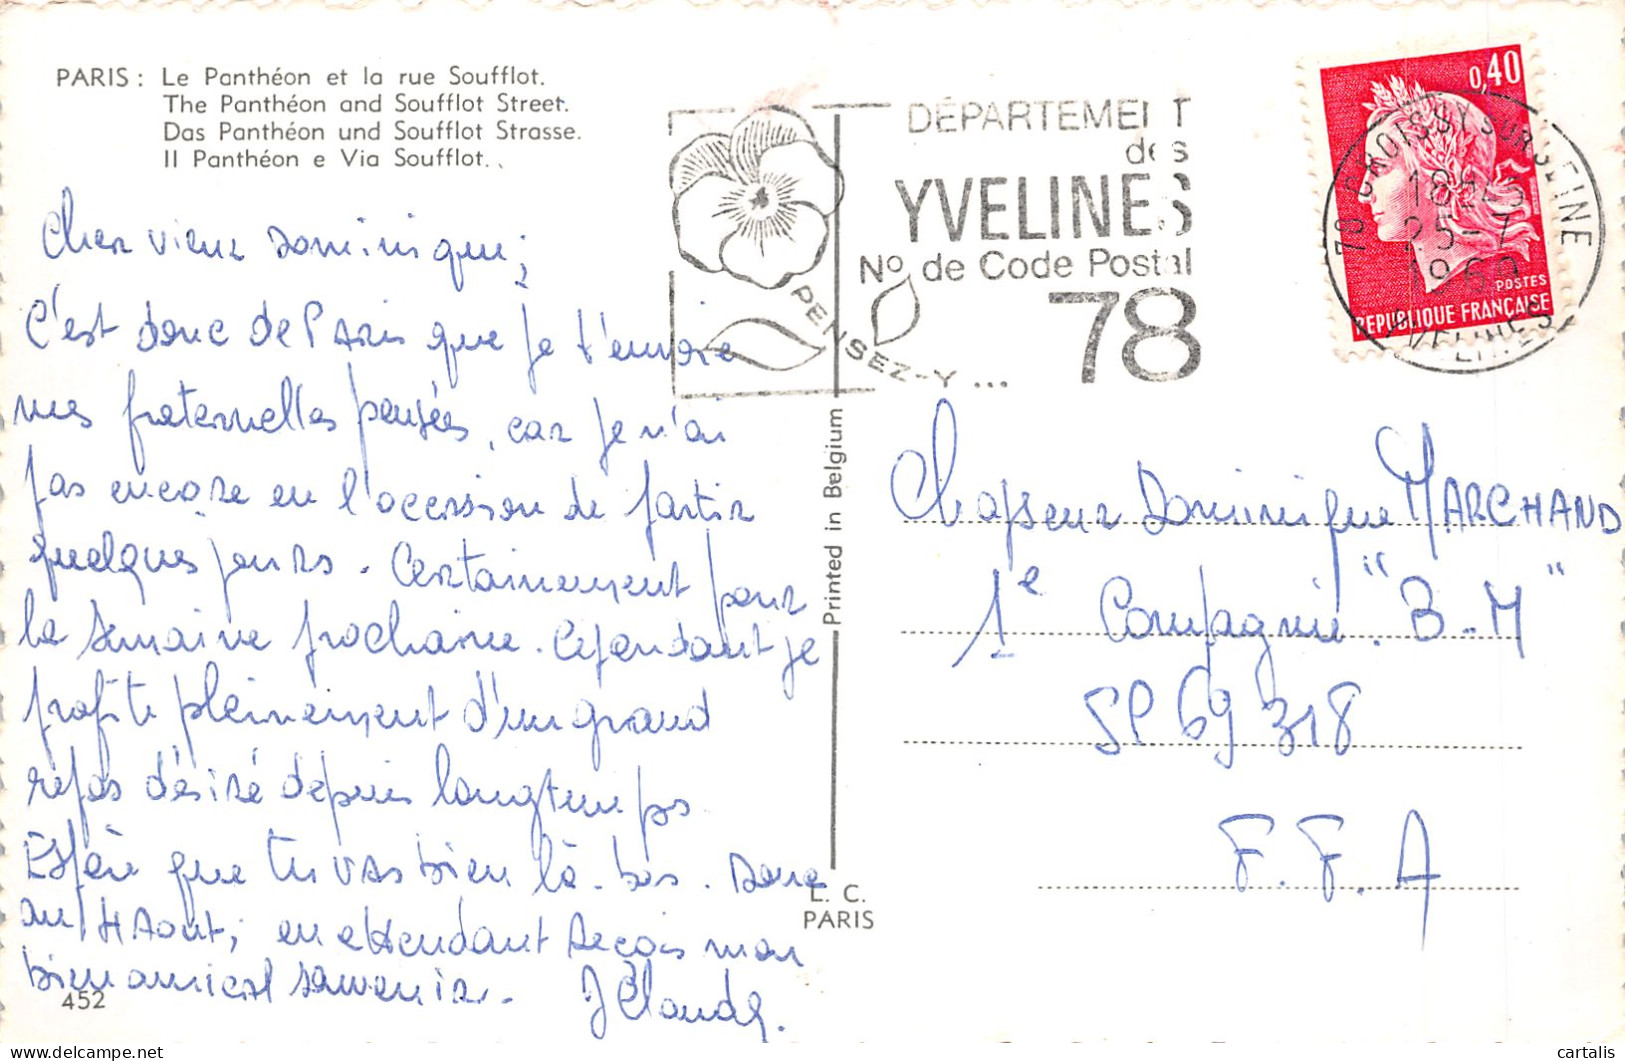 PARIS : Le Panthéon et la rue Soufflot.
The Panthéon and Soufflot Street.
Das Panthéon und Soufflot Strasse.
Il Panthéon e Via Soufflot.
Cher vieux Dominique;
C'est donc de Paris que je t'envoie
mes fraternelles pensées, car je n'ai
pas encore eu l'occasion de partir
quelques jours. Certainement pour
la semaine prochaine. Cependant je
profite pleinement d'un grand
repos désiré depuis longtemps.
Espère que tu vas bien là-bas. Donc
au 4 Aout; en attendant reçois mon
bien amical souvenir. J Claude.
452
DÉPARTEMENT
des
YVELINES
No de Code Postal
78
PENSEZ-Y ...
Printed in Belgium
L. C.
PARIS
0,40
POSTES
REPUBLIQUE FRANÇAISE
78 CROISSY SUR SEINE
18H45
25-7
1969
YVELINES
Chasseur Dominique MARCHAND
1e Compagnie "B-M"
SP 69 318
F. F. A
cartalis